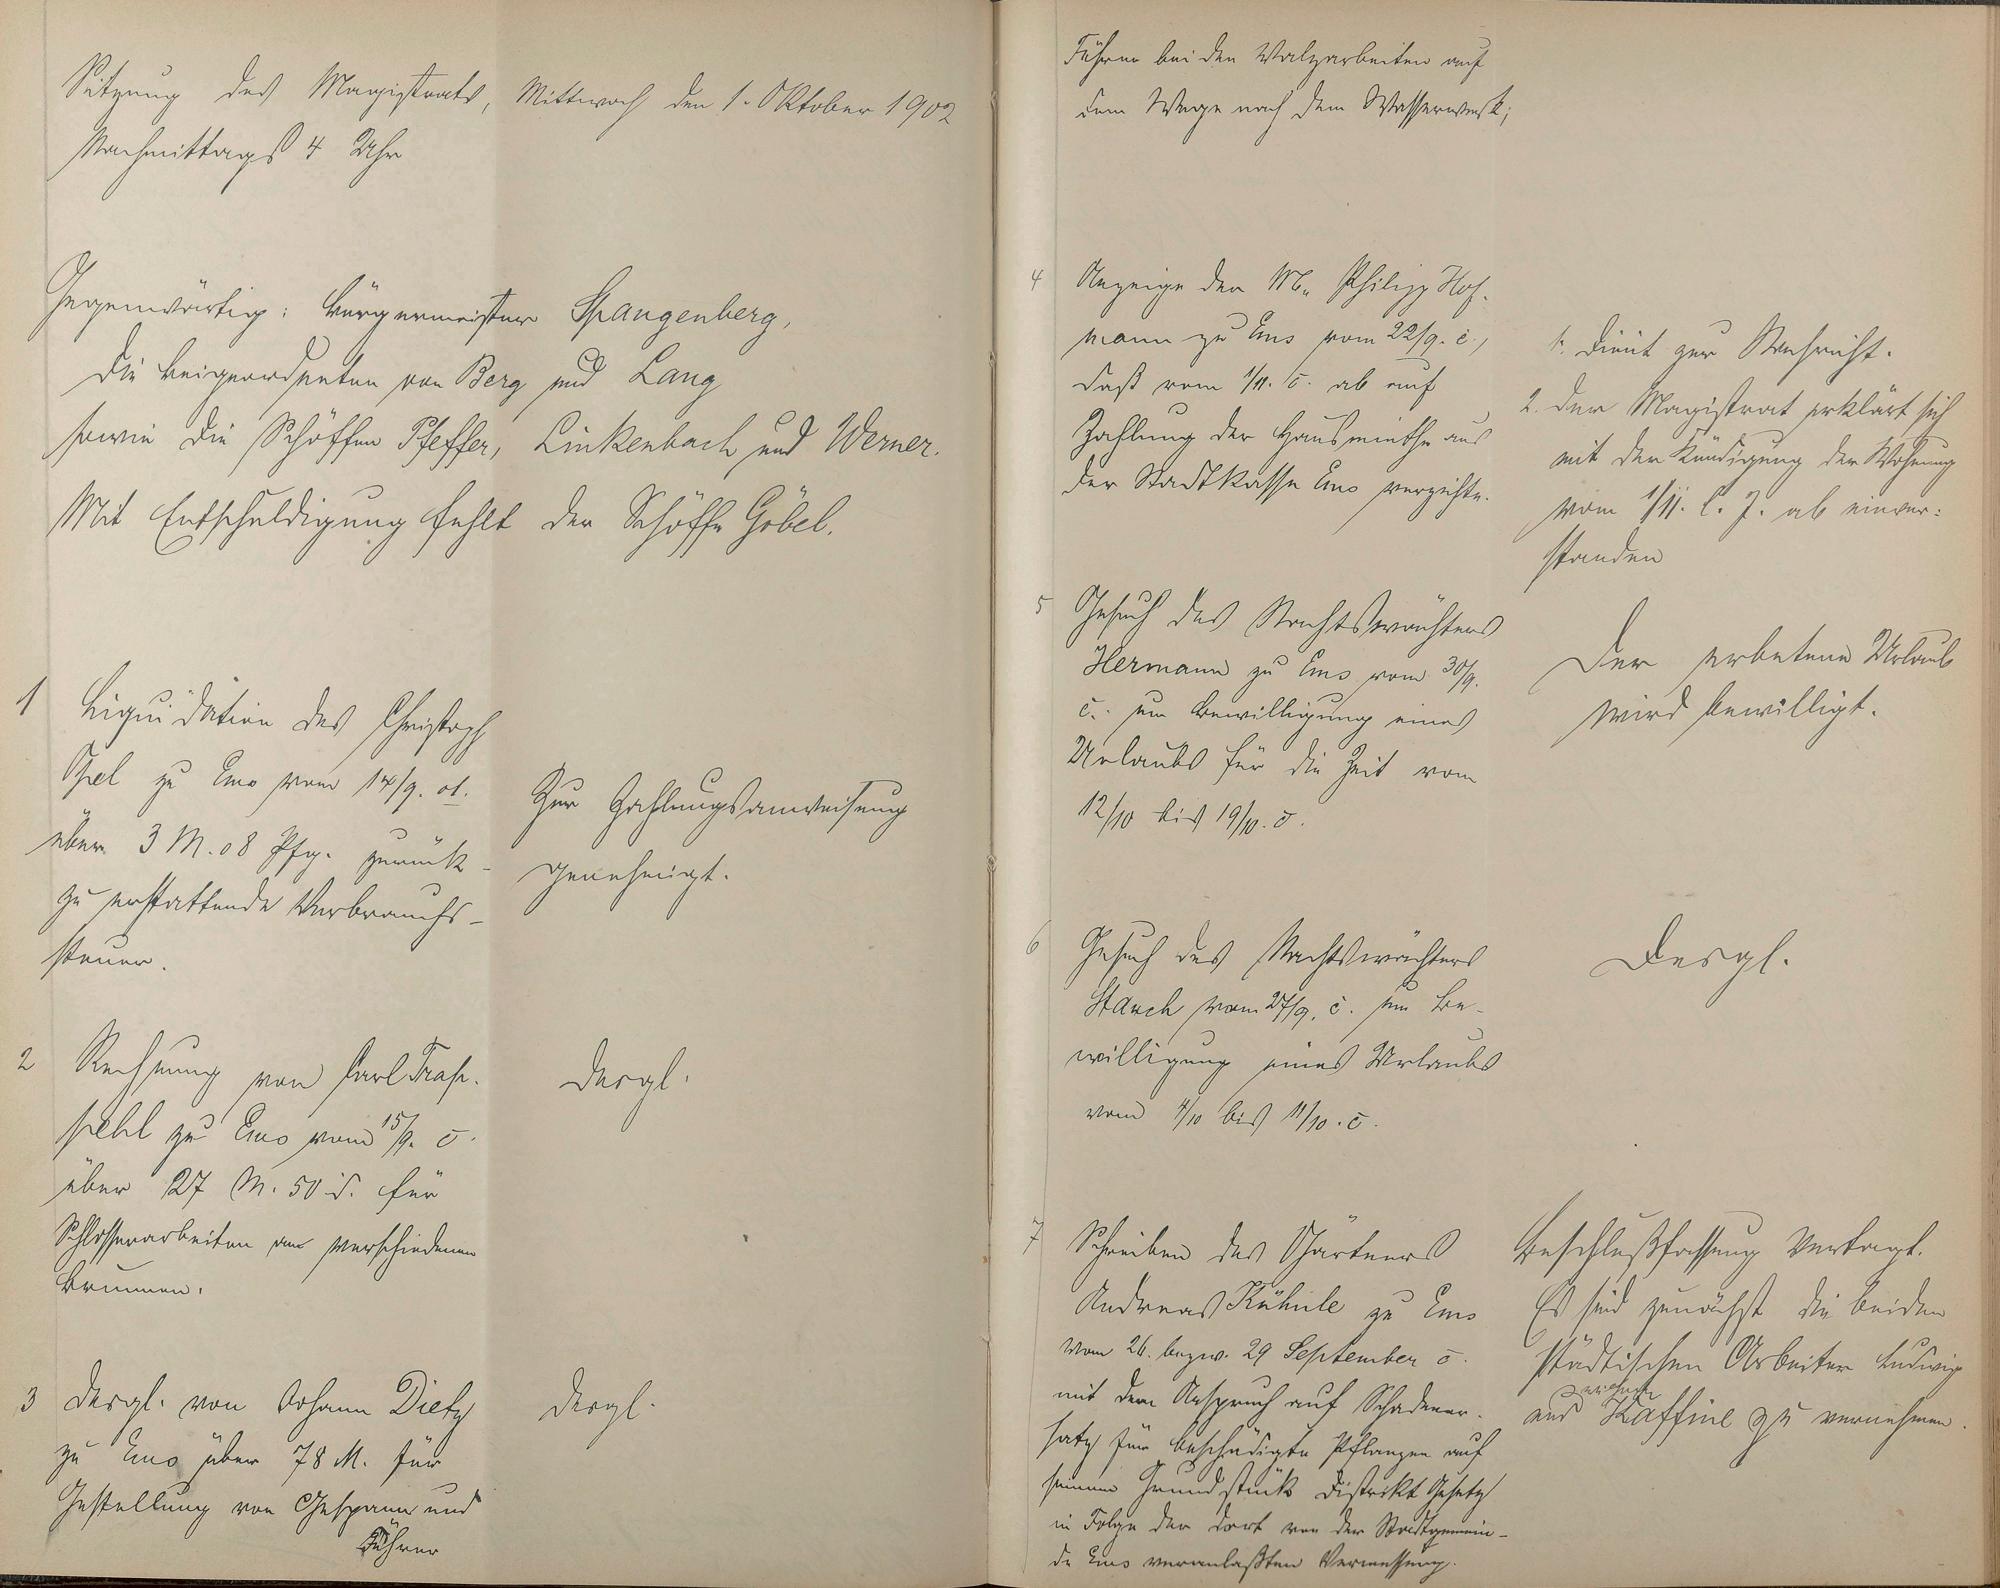 Sitzung des Magistrats, Mittwoch den 1. Oktober 1902
Nachmittags 4 Uhr
Gegenwärtig: Bürgermeister Spangenberg,
die Beigeordneten von Berg und Lang
sowie die Schöffen Pfeffer, Linkenbach und Werner.
Mit Entschuldigung fehlt der Schöffe Göbel.
1 Liquidation des Christoph
Opel zu Ems vom
über 3 M. 08 Pfg. zurück-
zu erstattende Verbrauchs-
steuer.
Zur Zahlungsanweisung
genehmigt.
2 Rechnung von Carl
zu Ems vom 15/9. c.
über 27 M. 50 d. für
Schlosserarbeiten an verschiedenen
Brunnen.
desgl.
3 desgl. von Johann Dietz
zu Ems über 78 M. für
Gestellung von Gespann und
Führer
desgl.
Führer bei den Walzarbeiten auf
dem Wege nach dem Wasserwerk;
4 Anzeige der Philipp Hof-
mann zu Ems vom 22/9. c.,
daß vom 1/11. c. ab auf
Zahlung der Hausmiethe aus
der Stadtkasse Ems verzichte.
1. Dient zur Nachricht.
2. Der Magistrat erklärt sich
mit der Kündigung der Wohnung
vom 1/11. l. J. ab einver-
standen
5 Gesuch des Nachtswächters
Hermann zu Ems vom 30/9.
c. um Bewilligung eines
Urlaubs für die Zeit vom
12/10 bis 19/10. c.
Der erbetene Urlaub
wird bewilligt.
6 Gesuch des Nachtswächters
Stauch vom 27/9. c. um Be-
willigung eines Urlaubs
vom 4/10 bis 11/10. c.
Desgl.
7 Schreiben des Gärtners
Andreas Kühnle zu Ems
vom 26. bezw. 29 September c.
mit dem Anspruch auf Schadener-
satz für beschädigte Pflanzen auf
seinem Grundstück Distrikt
in Folge der dort von der Stadtgemein-
de Ems veranlaßten Vermessung.
Beschlußfassung vertagt.
Es sind zunächst die beiden
städtischen Arbeiter Ludwig
und Kaffine zu vernehmen.